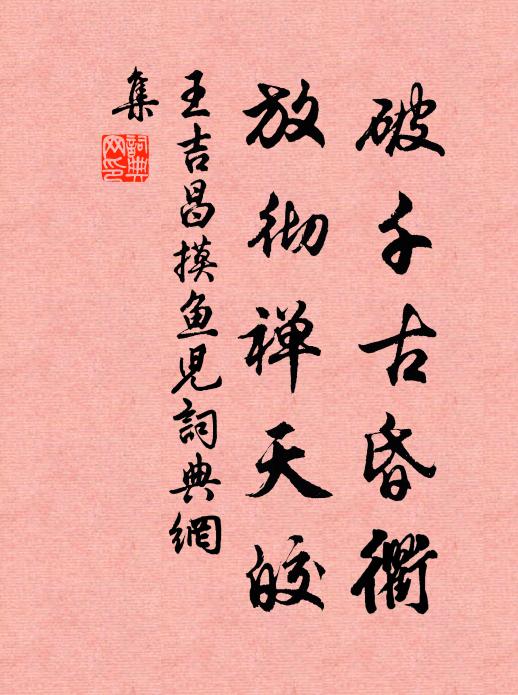 破千古昏衢
放彻禅天皎
王吉昌摸鱼児詞典網
集
詞典
网印